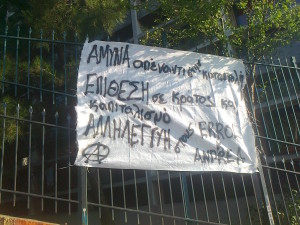 ΑΜΥΝΑ απέναντι στην καταστολή
ΕΠΙΘΕΣΗ σε κράτος και
καπιταλισμό
ΑΛΛΗΛΕΓΓΥΗ στους ERROL
ANDREJ